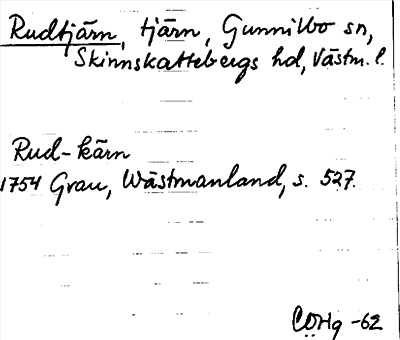 Rudtjärn, tjärn, Gunnilbo sn,
Skinnskattebergs hd, Västm. l.
Rud-kärn
1754 Grau, Wästmanland, s. 527.
-62